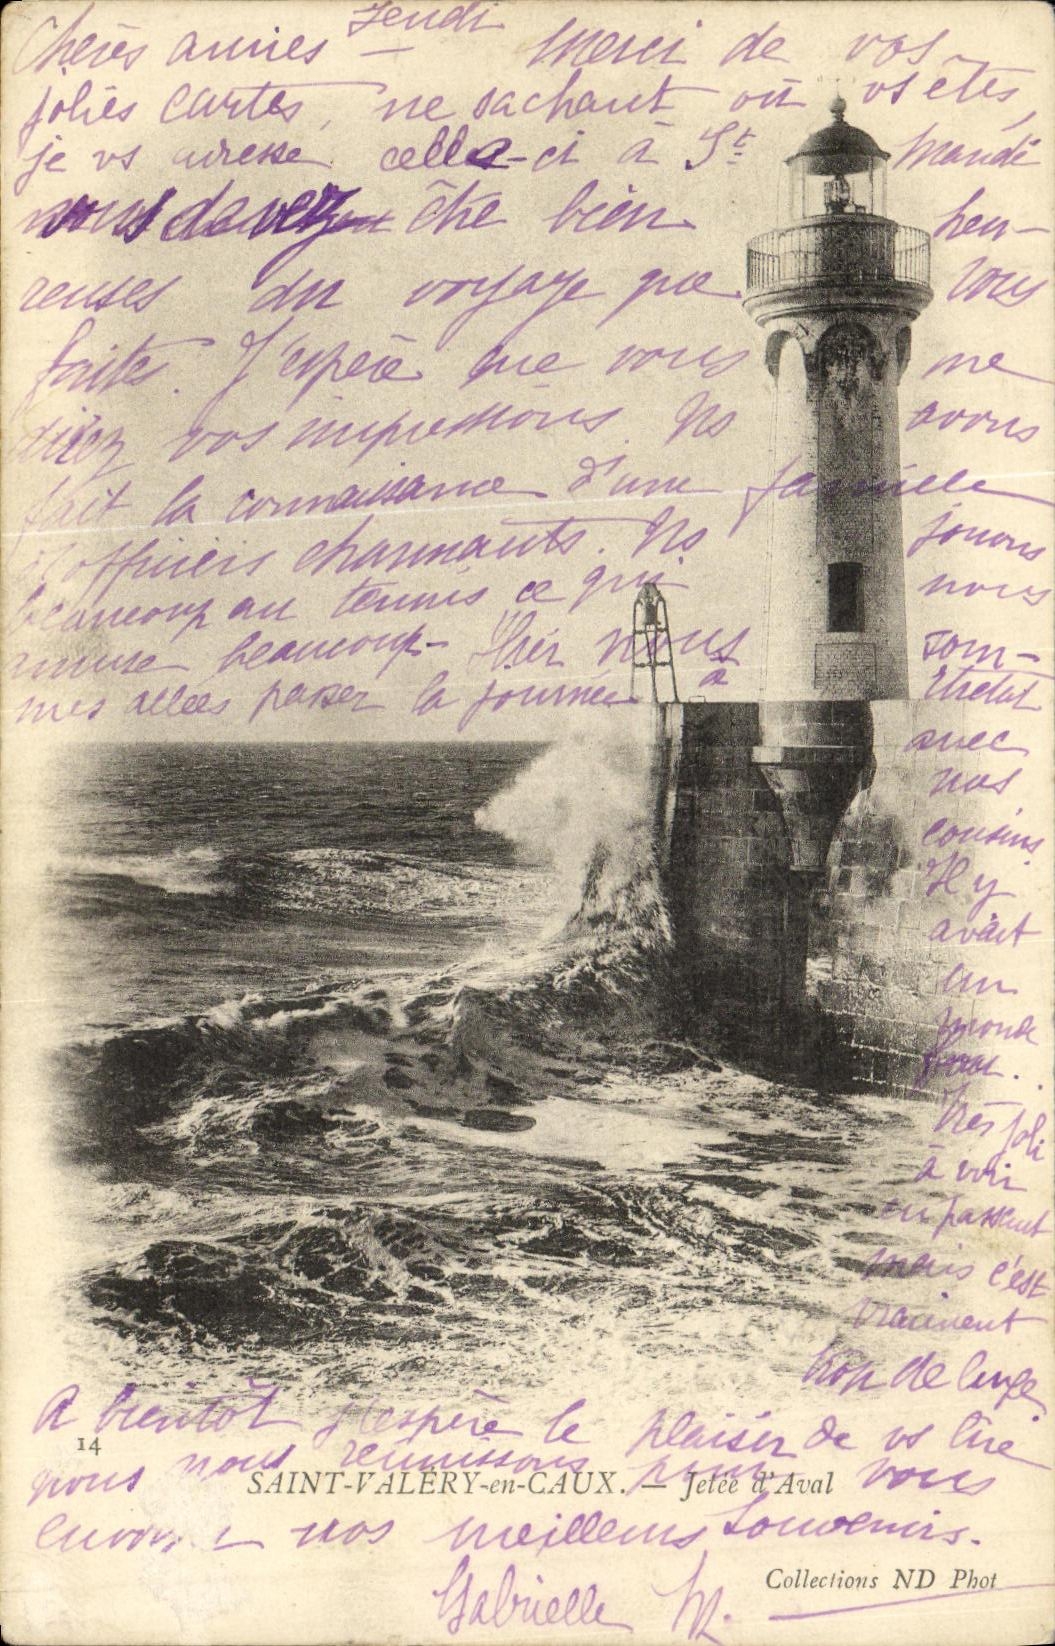 Jeudi
Chères amies — Merci de vos
jolies cartes, ne sachant où vs êtes,
je vs adresse celle-ci à St Mandé
vous devez être bien heu-
reuses du voyage que vous
faites. J'espère que vous me
direz vos impressions. Ns avons
fait la connaissance d'une famille
d'officiers charmants. Ns jouons
beaucoup au tennis ce qui nous
amuse beaucoup - Hier nous som-
mes allées passer la journée à Etretat
avec
nos
cousins
Il y
avait
un
monde
fou.
Très joli
à voir
en passant
mais c'est
vraiment
trop de luxe
A bientôt j'espère le plaisir de vs lire
nous nous réunissons pour vous
envoyer nos meilleurs souvenirs.
Gabrielle M.
14
SAINT-VALÉRY-en-CAUX. — Jetée d'Aval
Collections ND Phot